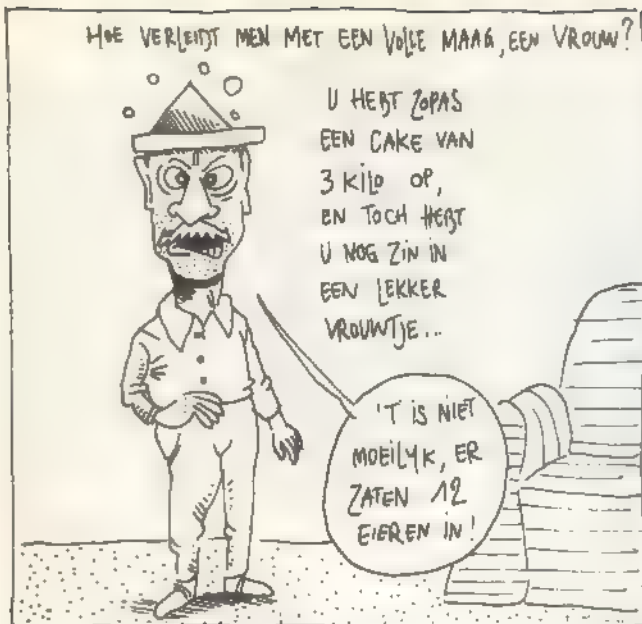 HOE VERLEIDT MEN MET EEN VOLLE MAAG, EEN VROUW?
U HEBT ZOPAS
EEN CAKE VAN
3 KILO OP,
EN TOCH HEBT
U NOG ZIN IN
EEN LEKKER
VROUWTJE...
'T IS NIET
MOEILYK, ER
ZATEN 12
EIEREN IN!